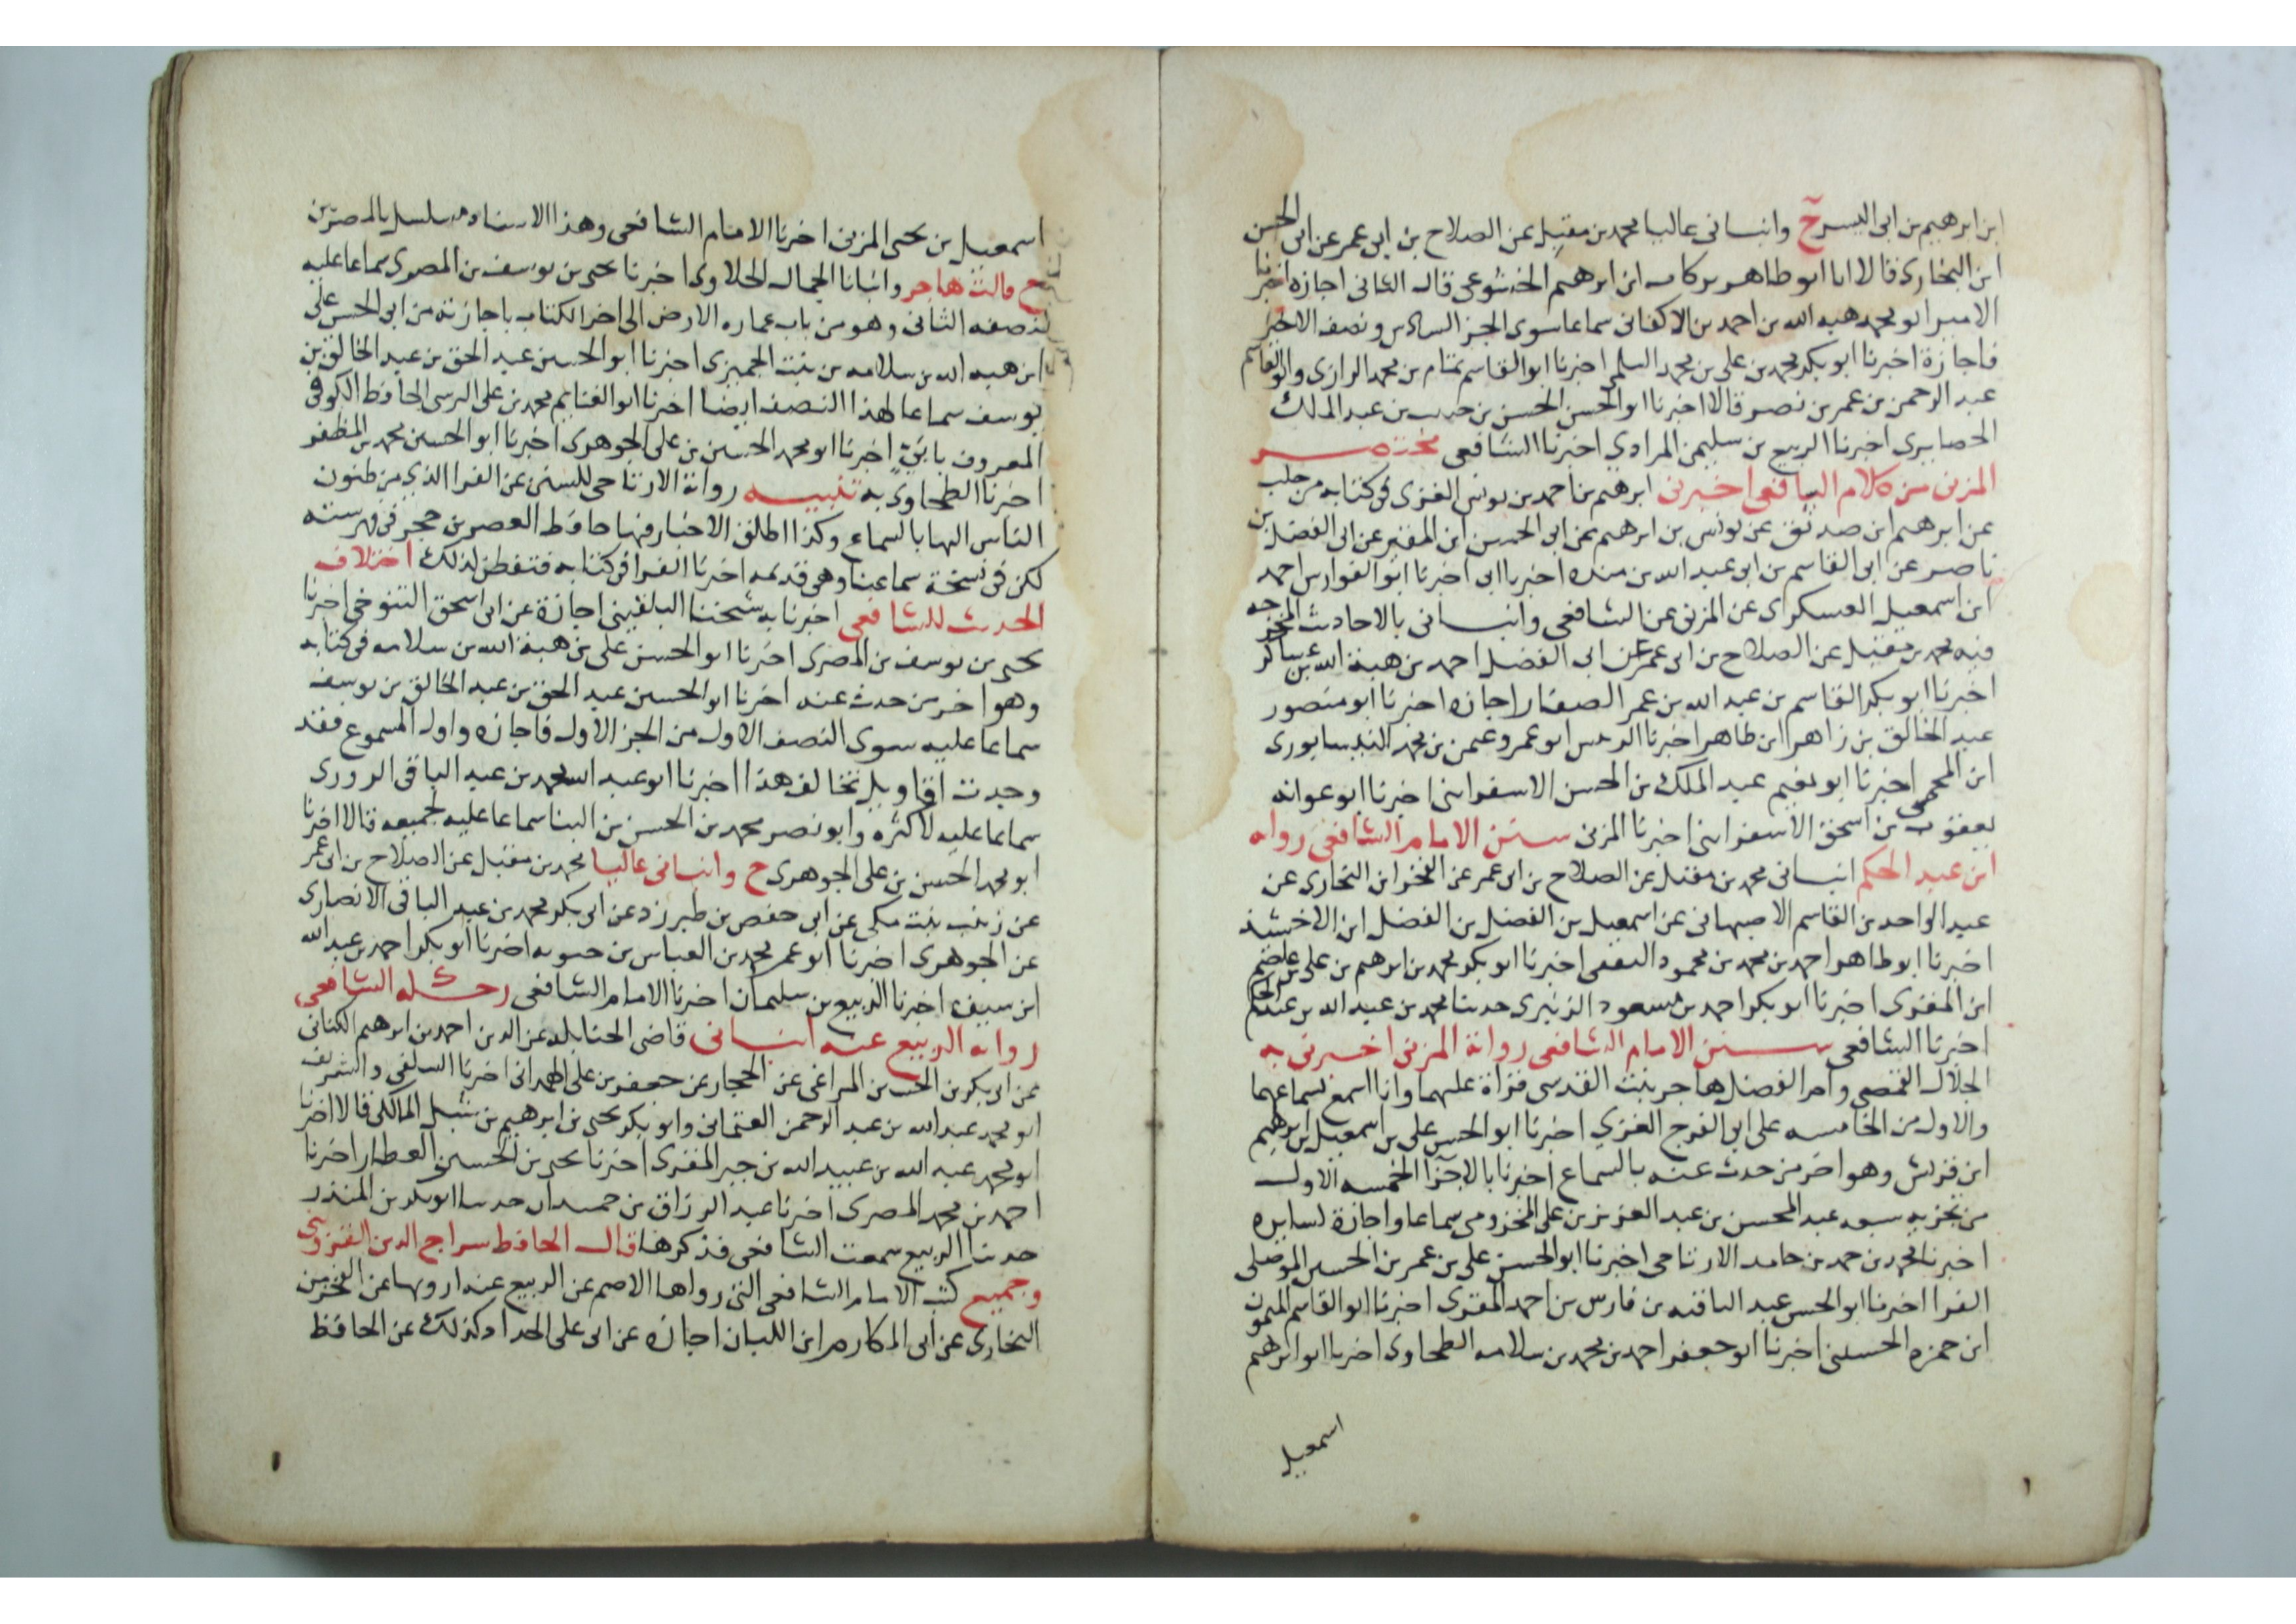 ابن ابرهيم بن ابى اليسر ح وانبانى عاليا محمد بن مقبل عن الصلاح بن ابى عمر عن ابى الحسن
ابن البخارى قالا انا ابو طاهر بركات ابن ابرهيم الخشوعى قال الثانى اجازه اخبرنا
الامير ابو محمد هبه الله بن احمد بن الاكفانى سماعا سوى الجز السادس ونصف الاخير
فاجازة اخبرنا ابو بكر محمد بن على بن محمد السلمى اخبرنا ابو القاسم تمام بن محمد الرازى وابو القاسم
عبد الرحمن بن عمر بن نصر قالا اخبرنا ابو الحسن الحسن بن حبيب بن عبد الملك
الحصايرى اخبرنا الربيع بن سليمن المرادى اخبرنا الشافعى مختصر
المزنى من كلام الشافعى اخبرنى ابرهيم بن احمد بن يونس الغزى فى كتابه من حلب
عن ابرهيم ابن صديق عن يونس بن ابرهيم عن ابى الحسن ابن المقير عن ابى الفضل بن
ناصر عن ابى القاسم بن ابى عبد الله بن منده اخبرنا ابى اخبرنا ابو الفوارس احمد
ابن اسمعيل العسكرى عن المزنى عن الشافعى وانبانى بالاحاديث المخرجه
فيه محمد بن مقبل عن الصلاح بن ابى عمر عن ابى الفضل احمد بن هبة الله بن عساكر
اخبرنا ابو بكر القاسم بن عبد الله بن عمر الصفار اجازه اخبرنا ابو منصور
عبد الخالق بن زاهر ابن طاهر اخبرنا ابو عمرو عثمن بن محمد النيسابورى
ابن المحمى اخبرنا ابو نعيم عبد الملك بن الحسن الاسفراينى اخبرنا ابو عوانه
يعقوب بن اسحق الاسفراينى اخبرنا المزنى سنن الامام الشافعى رواه
ابن عبد الحكم انبانى محمد بن مقبل عن الصلاح بن ابى عمر عن الفخر ابن البخارى عن
عبد الواحد بن القاسم الاصبهانى عن اسمعيل بن الفضل بن الفضل ابن الاخشيذ
اخبرنا ابو طاهر احمد بن محمد بن محمود الثقفى اخبرنا ابو بكر محمد بن ابرهيم بن على بن عاصم
ابن المقرى اخبرنا ابو بكر احمد بن مسعود الزنبرى حدثنا محمد بن عبد الله بن عبد الحكم
اخبرنا الشافعى سنن الامام الشافعى رواية المزنى اخبرنى به
الجلال القمصى وام الفضل هاجر بنت القدسى قراة عليهما وانا اسمع بسماعهما
والاول من الخامسه على ابى الفرج الغزى اخبرنا ابو الحسن على بن اسمعيل بن ابرهيم
ابن قريش وهو اخر من حدث عنه بالسماع اخبرنا بالاجزا الخمسه الاول
من تجزيه سبعه عبد المحسن بن عبد العزيز بن على المخزومى سماعا واجازة لسايره
اخبرنا محمد بن حمد بن حامد الارتاحى اخبرنا ابو الحسن على بن عمر بن الحسين الموصلى
الفرا اخبرنا ابو الحسن عبد الباقى بن فارس بن احمد المقرى اخبرنا ابو القاسم الميمون
ابن حمزه الحسينى اخبرنا ابو جعفر احمد بن محمد بن سلامه الطحاوى اخبرنا ابو ابرهيم
اسمعيل
اسمعيل بن يحيى المزنى اخبرنا الامام الشافعى وهذا الاسناد مسلسل بالمصريين
ح قالت هاجر وانبانا الجمال الحلاوى اخبرنا يحيى بن يوسف بن المصرى سماعا عليه
لنصفه الثانى وهو من باب عماره الارض الى اخر الكتاب باجازته من ابى الحسن على
ابن هبه الله بن سلامه بن بنت الجميزى اخبرنا ابو الحسين عبد الحق بن عبد الخالق بن
يوسف سماعا لهذا النصف ايضا اخبرنا ابو الغنايم محمد بن على النرسى الحافظ الكوفى
المعروف بابىّ اخبرنا ابو محمد الحسين بن على الجوهرى اخبرنا ابو الحسين محمد بن المظفر
اخبرنا الطحاوى به تنبيه رواية الارتاحى للسنن عن الفرا الذى من طنون
الناس انها بالسماع وكذا اطلق الاخبار فيها حافظ العصر بن حجر فى فهرسته
لكن فى نسخة سماعنا وهى قديمه اخبرنا الفرا فى كتابه فتفطن لذلك اختلاف
الحديث للشافعى اخبرنا به شيخنا البلقينى اجازة عن ابى اسحق التنوخى اخبرنا
يحيى بن يوسف بن المصرى اخبرنا ابو الحسن على بن هبة الله بن سلامه فى كتابه
وهو اخر من حدث عنه اخبرنا ابو الحسين عبد الحق بن عبد الخالق بن يوسف
سماعا عليه سوى النصف الاول من الجز الاول فاجازه واول المسموع فقد
وجدت اقاويل تخالف هذا اخبرنا ابو عبد الله محمد بن عبد الباقى الدورى
سماعا عليه لاكثره وابو نصر محمد بن الحسن بن البنا سماعا عليه لجميعه قالا اخبرنا
ابو محمد الحسن بن على الجوهرى ح وانبانى عاليا محمد بن مقبل عن الصلاح بن ابى عمر
عن زينب بنت مكى عن ابى حفص بن طبرزد عن ابى بكر محمد بن عبد الباقى الانصارى
عن الجوهرى اخبرنا ابو عمر محمد بن العباس بن حيويه اخبرنا ابو بكر احمد بن عبد الله
ابن سيف اخبرنا الربيع بن سليمان اخبرنا الامام الشافعى رحلة الشافعى
روايه الربيع عنه انبانى قاضى الحنابله عز الدين احمد بن ابرهيم الكنانى
عن ابى بكر بن الحسين المراغى عن الحجار عن جعفر بن على الهمدانى اخبرنا السلفى والشريف
ابو محمد عبد الله بن عبد الرحمن العثمانى وابو بكر يحيى بن ابرهيم بن شبل المالكى قالا اخبرنا
ابو محمد عبد الله بن عبيد الله بن جبر المقرى اخبرنا يحيى بن الحسين العطار اخبرنا
احمد بن محمد المصرى اخبرنا عبد الرزاق بن حمدان حدثنا ابو بكر بن المنذر
حدثنا الربيع سمعت الشافعى فذكرها قال الحافظ سراج الدين القزوينى
وجميع كتب الامام الشافعى التى رواها الاصم عن الربيع عنه ارويها عن الفخر بن
البخارى عن ابى المكارم ابن اللبان اجازه عن ابى على الحداد وكذلك عن الحافظ